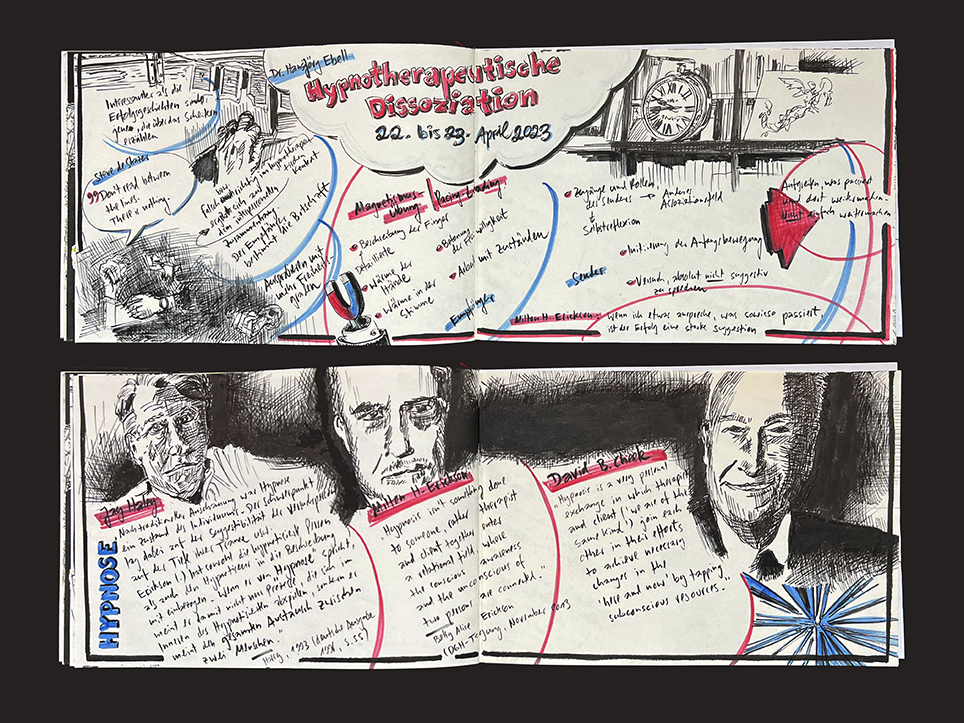 Dr. Hansjörg Ebell
Hypnotherapeutische
Dissoziation
22. bis 23. April 2023
Interessanter als die
Erfolgsgeschichten sind
jene, die über das Scheitern
erzählen
Steve de Shazer
"Don't read between
the lines.
There is nothing.
im hypnotherapeu-
tischen
Kontext
Zusammenhang
Der Empfänger
bestimmt die Botschaft
Ausprobieren mit
Freiheits-
graden
Magnetismus-
Übung
Beschreibung des Fingers
Detailliert
Wärme der
Hände
Wärme in der
Stimme
Pacing-Leading
Betonung
der Freiwilligkeit
Arbeit mit Zuständen
Empfänger
Zugänge und Rollen
des Senders → Anderes
Assoziationsfeld
Selbstreflexion
Initiierung der Anfangsbewegung
Sender
Versuch, absolut nicht suggestiv
zu sprechen
Milton H. Erickson: Wenn ich etwas anspreche, was sowieso passiert
ist der Erfolg eine starke Suggestion
Aufgreifen, was passiert
und dort weitermachen
Nicht einfach weitermachen
HYPNOSE
Jay Haley
Nach traditioneller Anschauung war Hypnose
ein Zustand des Individuums. Der Schwerpunkt
lag dabei auf der Suggestibilität der Versuchsperson
auf der Tiefe ihrer Trance usw.
Erickson (!) hat sowohl die hypnotisierte Person
als auch den Hypnotiseur in die Beschreibung
mit einbezogen. Wenn er von "Hypnose" spricht,
meint er damit nicht nur Prozesse, die sich im
Inneren des Hypnotisierten abspielen, sondern er
meint den gesamten Austausch zwischen
zwei Menschen."
Haley, 1993 (deutsche Ausgabe
1978, S. 55)
Milton H. Erickson
"Hypnosis isn't something done
to someone, rather therapist
and client together enter
a relational field where
the conscious awareness
and the unconscious of
two persons are connected."
Betty Alice Erickson
(DGH-Tagung, November 2013
David B. Cheek
"Hypnosis is a very personal
exchange in which therapist
and client (we are of the
same kind!) join each
other in their efforts
to achieve necessary
changes in the
'here and now' by tapping
subconscious resources."